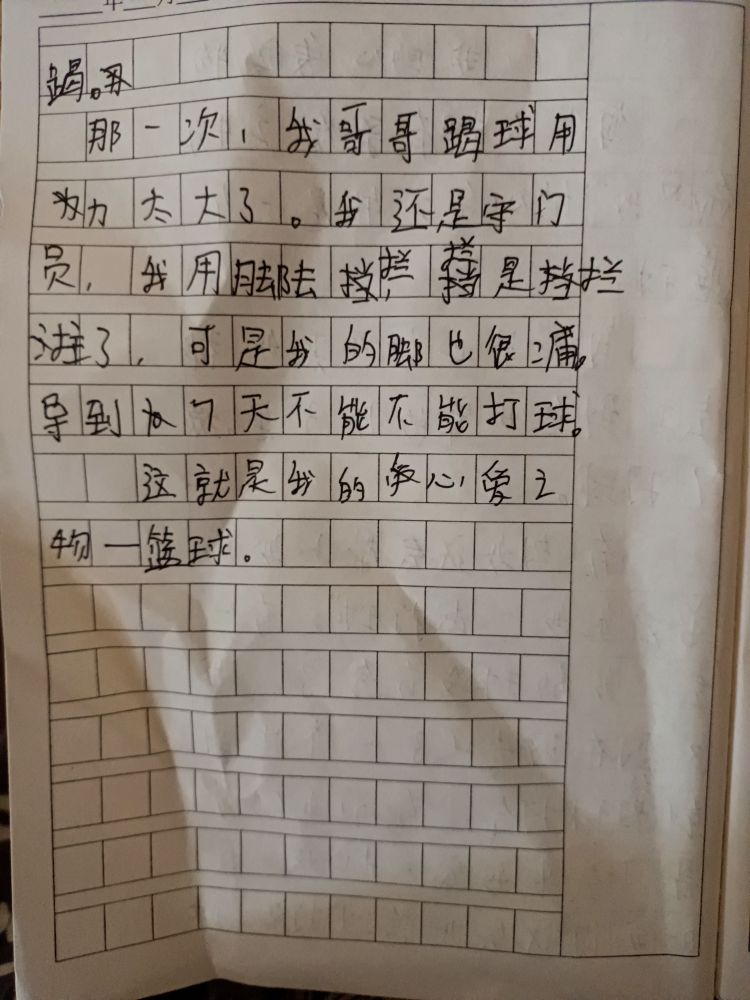 年 月
踢。
那一次，我哥哥踢球用
力太大了。我还是守门
员，我用脚去挡拦，拦挡是挡拦
注了，可是我的脚也很痛。
导到 7天不能不能打球。
这就是我的 心爱之
物一篮球。